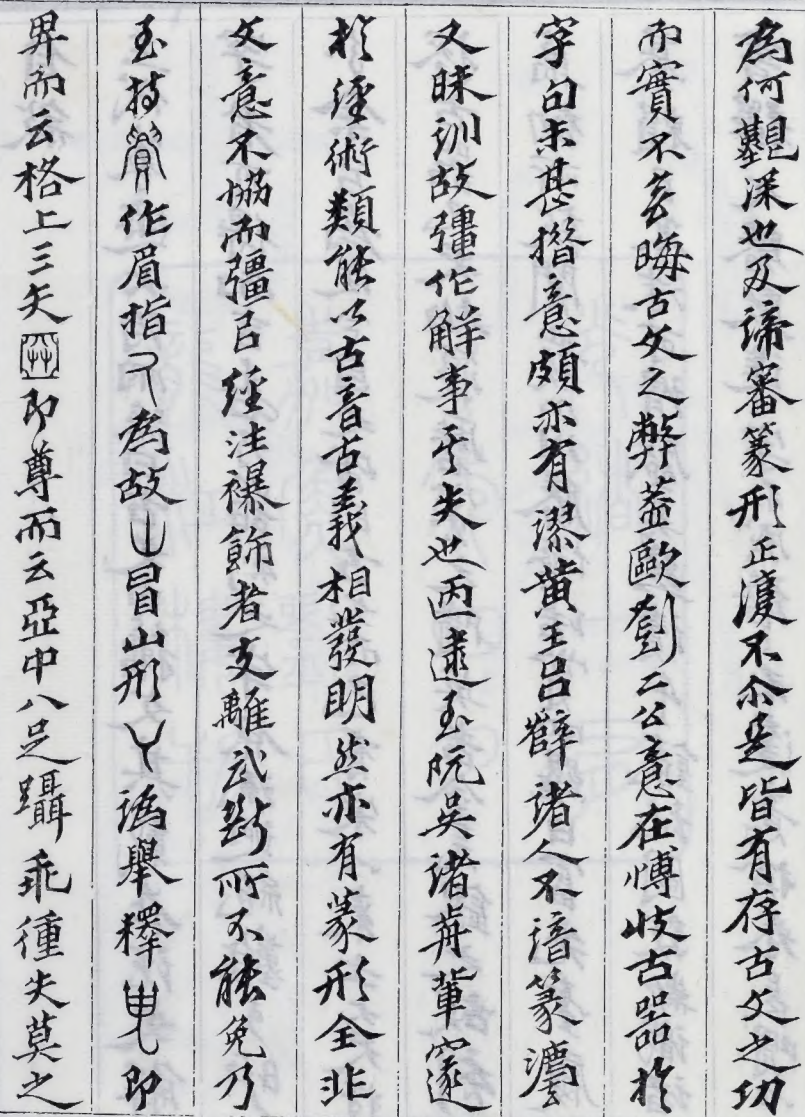 為何覲深也及諦審篆形正復不尒是皆有存古文之功
而實不无晦古文之弊蓋歐劉二公意在博收古器於
字句未甚措意頗亦有謬黃王呂薛諸人不諳篆
又昧訓故彊作解事其失也兩逮至阮吳諸再輩邃
於經術類能以古音古義相發明然亦有篆形全非
文意不協而彊㠯經注襮飾者支離武斷所不能免乃
至持作眉指又為故山冒山形丫譌舉釋即
畀而云格上三矢即尊而云亞中八足躡乖緟失莫之